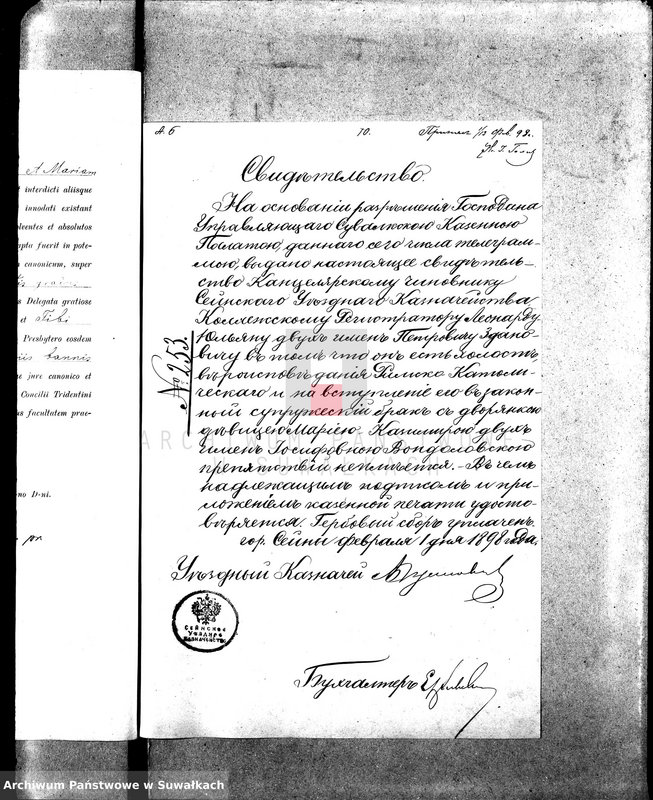 et Mariam
interdicti aliisque
innodati existant
lventes et absolutos
apta fuerit in pote-
canonicum, super
Delegata gratiose
et Tibi
Presbytero eosdem
bannis
ne jure canonico et
Concilii Tridentini
us facultatem prae-
no D-ni.
А. б
10.
98.
Свидѣтельство.
На основаніи разрѣшенія Господина
Управляющаго Сувалкскою Казенною
Палатою, даннаго сего числа телеграм-
мою, выдано настоящее свидѣтель-
ство Канцелярскому чиновнику
Сейнскаго Уѣзднаго Казначейства,
Коллежскому Регистратору Леонарду
Юльяну двухъ именъ Петровичу Здано-
вичу въ томъ что онъ есть холостъ,
вѣроисповѣданія Римско Католи-
ческаго и на вступленіе его въ закон-
ный супружескій бракъ съ дворянкою
дѣвицею Маріею-Казимирою двухъ
именъ Іосифовною Вондоловскою
препятствій неимѣется. - Въ чемъ
надлежащимъ подписомъ и при-
ложеніемъ казенной печати удосто-
вѣряется. Гербовый сборъ уплаченъ.
гор. Сейны февраля 1 дня 1898 года.
№ 253.
Уѣздный Казначей
Сейнское
Уѣздное
Казначейство
Бухгалтеръ
ARCHIWUM PAŃSTWOWE
SUWAŁKACH
Archiwum Państwowe w Suwałkach